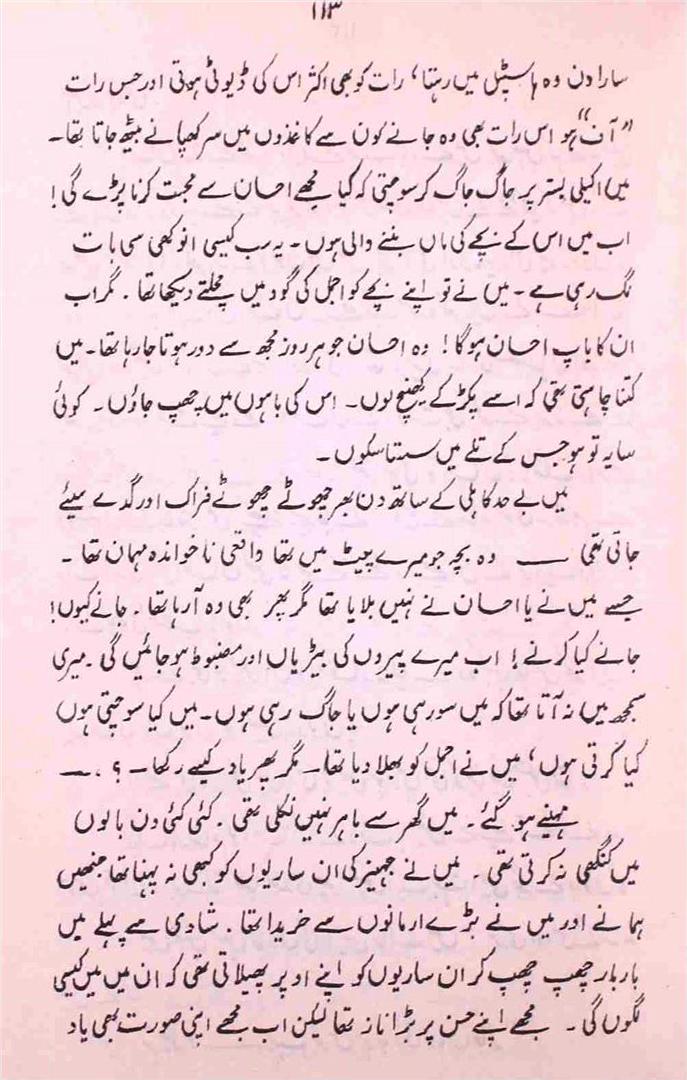 ۱۱۳
سارا دن وہ ہاسپٹل میں رہتا، رات کو بھی اکثر اس کی ڈیوٹی ہوتی اور جس رات
”آف“ ہو اس رات بھی وہ جانے کون سے کاغذوں میں سر کھپانے بیٹھ جاتا تھا۔
میں اکیلی بستر پر جاگ جاگ کر سوچتی کہ کیا مجھے احسان سے محبت کرنا پڑے گی!
اب میں اس کے بچے کی ماں بننے والی ہوں۔ یہ سب کیسی انوکھی سی بات
لگ رہی ہے۔ میں نے تو اپنے بچے کو اجمل کی گود میں مچلتے دیکھا تھا۔ مگر اب
ان کا باپ احسان ہوگا! وہ احسان جو ہر روز مجھ سے دور ہوتا جا رہا تھا۔ میں
کتنا چاہتی تھی کہ اسے پکڑ کے کھینچ لوں۔ اس کی باہوں میں چھپ جاؤں۔ کوئی
سایہ تو ہو جس کے تلے میں سستا سکوں۔
میں بے حد کاہلی کے ساتھ دن بھر چھوٹے چھوٹے فراک اور گدے سیئے
جاتی تھی ــــ وہ بچہ جو میرے پیٹ میں تھا واقعی ناخواندہ مہمان تھا۔
جسے میں نے یا احسان نے نہیں بلایا تھا مگر پھر بھی وہ آ رہا تھا۔ جانے کیوں!
جانے کیا کرنے! اب میرے پیروں کی بیڑیاں اور مضبوط ہو جائیں گی۔ میری
سمجھ میں نہ آتا تھا کہ میں سو رہی ہوں یا جاگ رہی ہوں۔ میں کیا سوچتی ہوں
کیا کرتی ہوں، میں نے اجمل کو بھلا دیا تھا۔ مگر پھر یاد کیسے رکھا۔ ؟ ۔ــ
مہینے ہو گئے۔ میں گھر سے باہر نہیں نکلی تھی۔ کئی کئی دن بالوں
میں کنگھی نہ کرتی تھی۔ میں نے جہیز کی ان ساریوں کو کبھی نہ پہنا تھا جنھیں
ہما نے اور میں نے بڑے ارمانوں سے خریدا تھا۔ شادی سے پہلے میں
بار بار چھپ چھپ کر ان ساریوں کو اپنے اوپر پھیلاتی تھی کہ ان میں میں کیسی
لگوں گی۔ مجھے اپنے حسن پر بڑا ناز تھا لیکن اب مجھے اپنی صورت بھی یاد